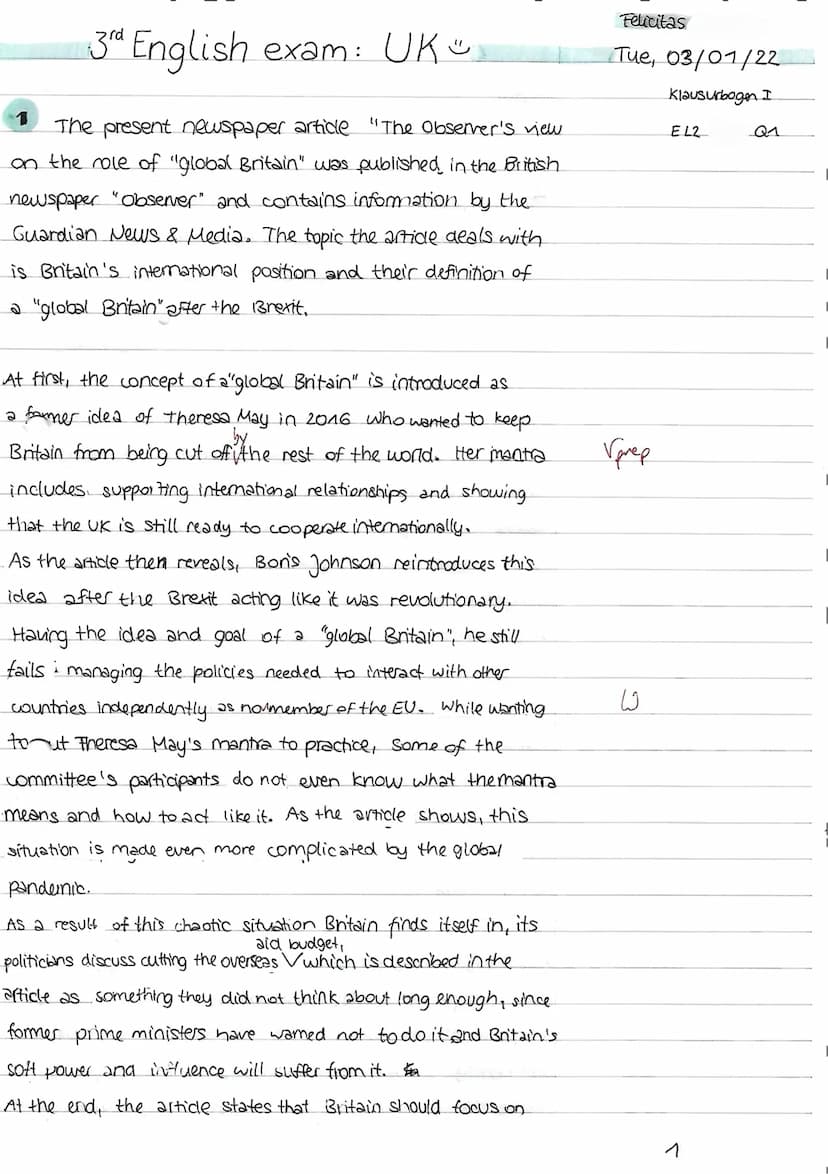 Felicitas
3rd English exam: UK
Tue, 03/01/22
Klausurbogen I
EL2 Q1
1 The present newspaper article "The Observer's view
on the role of "global Britain" was published in the British
newspaper "Observer" and contains information by the
Guardian News & Media. The topic the article deals with
is Britain's international position and their definition of
a "global Britain" after the Brexit.
At first, the concept of a "global Britain" is introduced as
a former idea of Theresa May in 2016 who wanted to keep
by
Britain from being cut off the rest of the world. Her mantra
√prep
includes supporting international relationships and showing
that the UK is still ready to cooperate internationally.
As the article then reveals, Boris Johnson reintroduces this
idea after the Brexit acting like it was revolutionary.
Having the idea and goal of a "global Britain", he still
fails managing the policies needed to interact with other
countries independently as no member of the EU. While wanting
W
to put Theresa May's mantra to practice, some of the
committee's participants do not even know what the mantra
means and how to act like it. As the article shows, this
situation is made even more complicated by the global
pandemic.
As a result of this chaotic situation Britain finds itself in, its
aid budget,
politicians discuss cutting the overseas √ which is described in the
article as something they did not think about long enough, since
former prime ministers have warned not to do it and Britain's
soft power and influence will suffer from it.
At the end, the article states that Britain should focus on
1